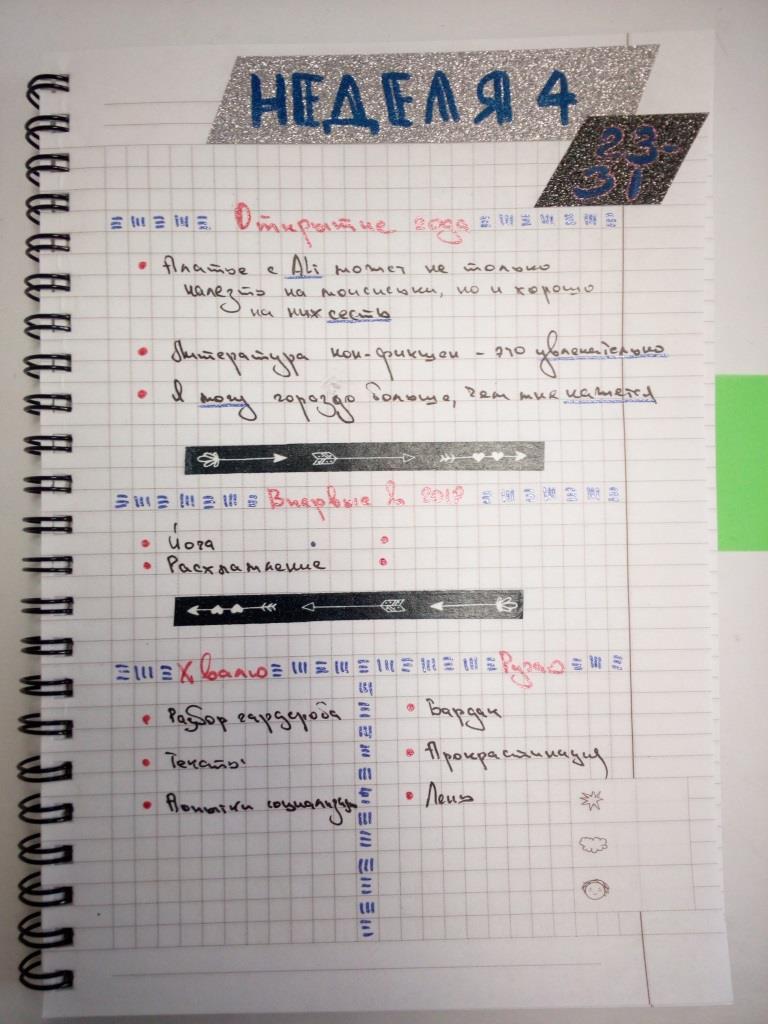 НЕДЕЛЯ 4
23-
31
Открытие года
Платье с Ali может не только
налезть на мои сиськи, но и хорошо
на них сесть
Литература нон-фикшен - это увлекательно
Я могу гораздо больше, чем мне кажется
Впервые в
Йога
Расхламление
Хвалю
Ругаю
Разбор гардероба
Бардак
Театры
Прокрастинация
Попытки социализации
Лень